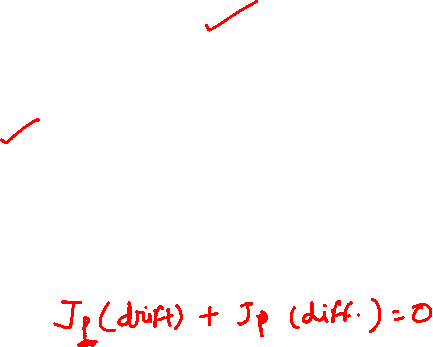 Jp (drift) + Jp (diff.) = 0